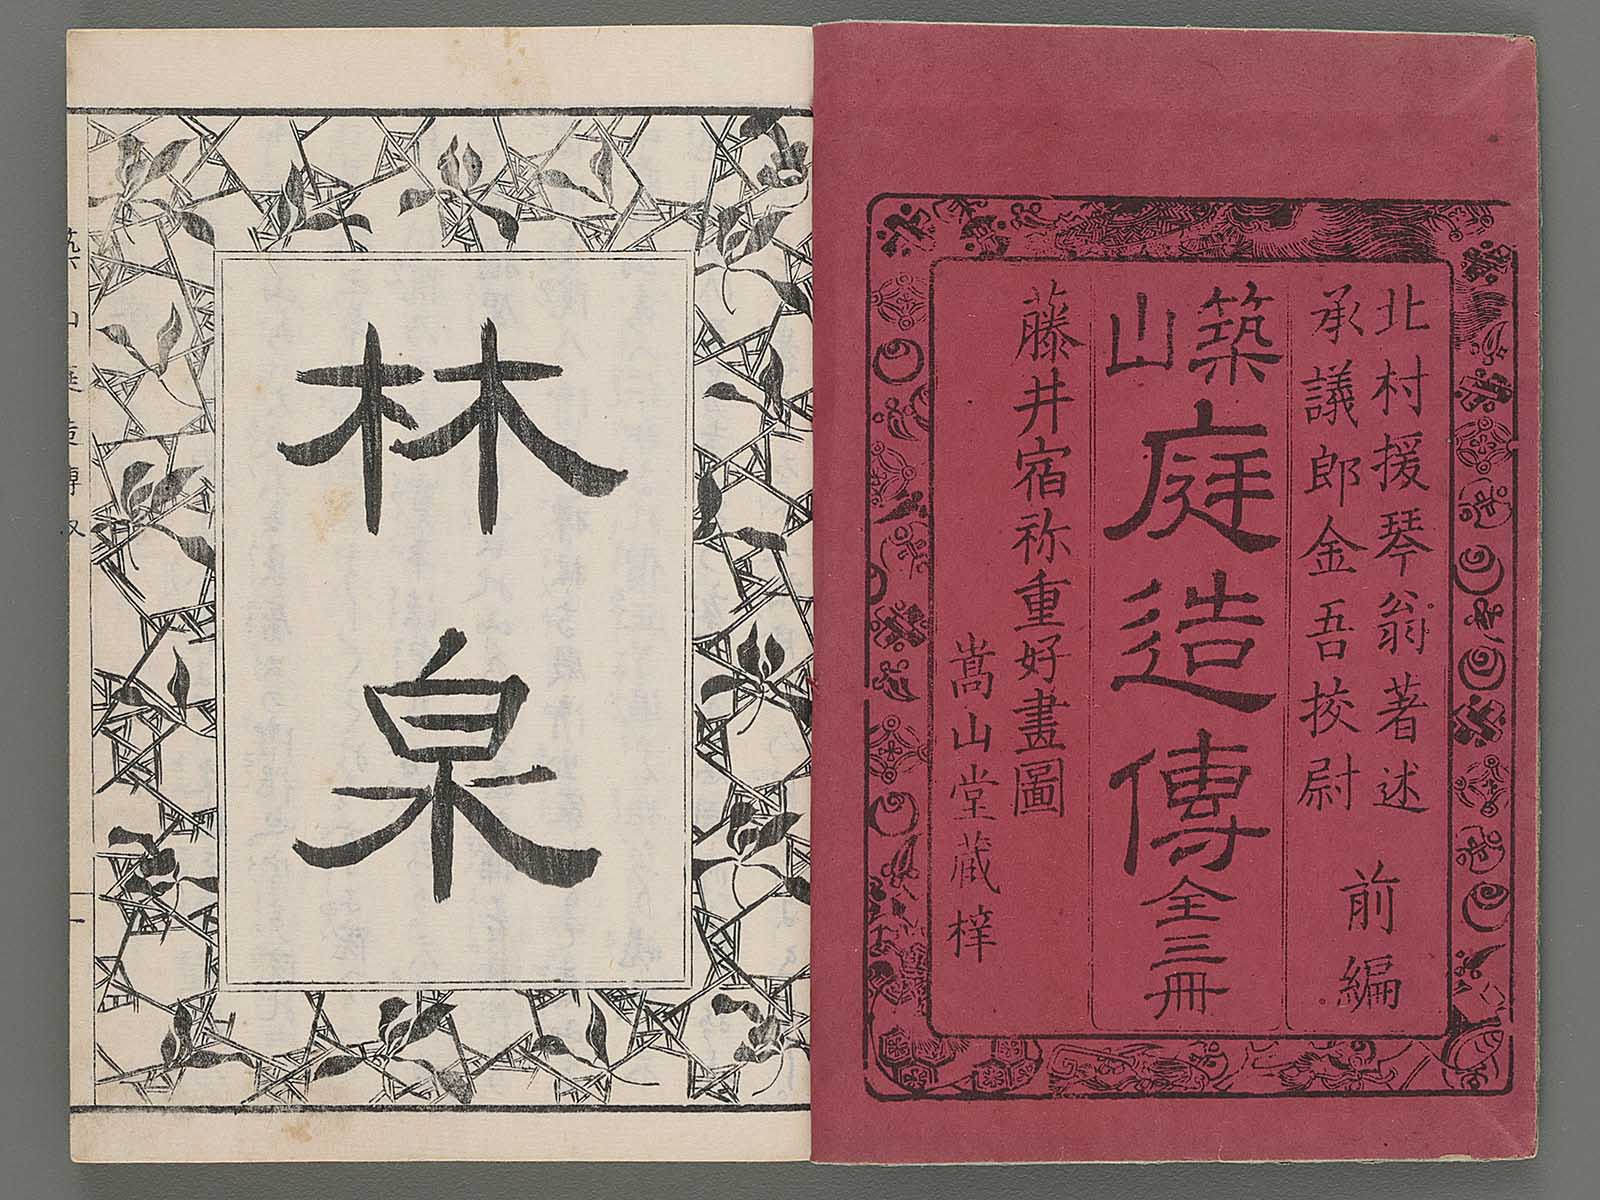 北村援琴翁著述
承議郎金吾挍尉
前編
築山
庭造傳
全三冊
藤井宿祢重好畫圖
嵩山堂蔵梓
林泉